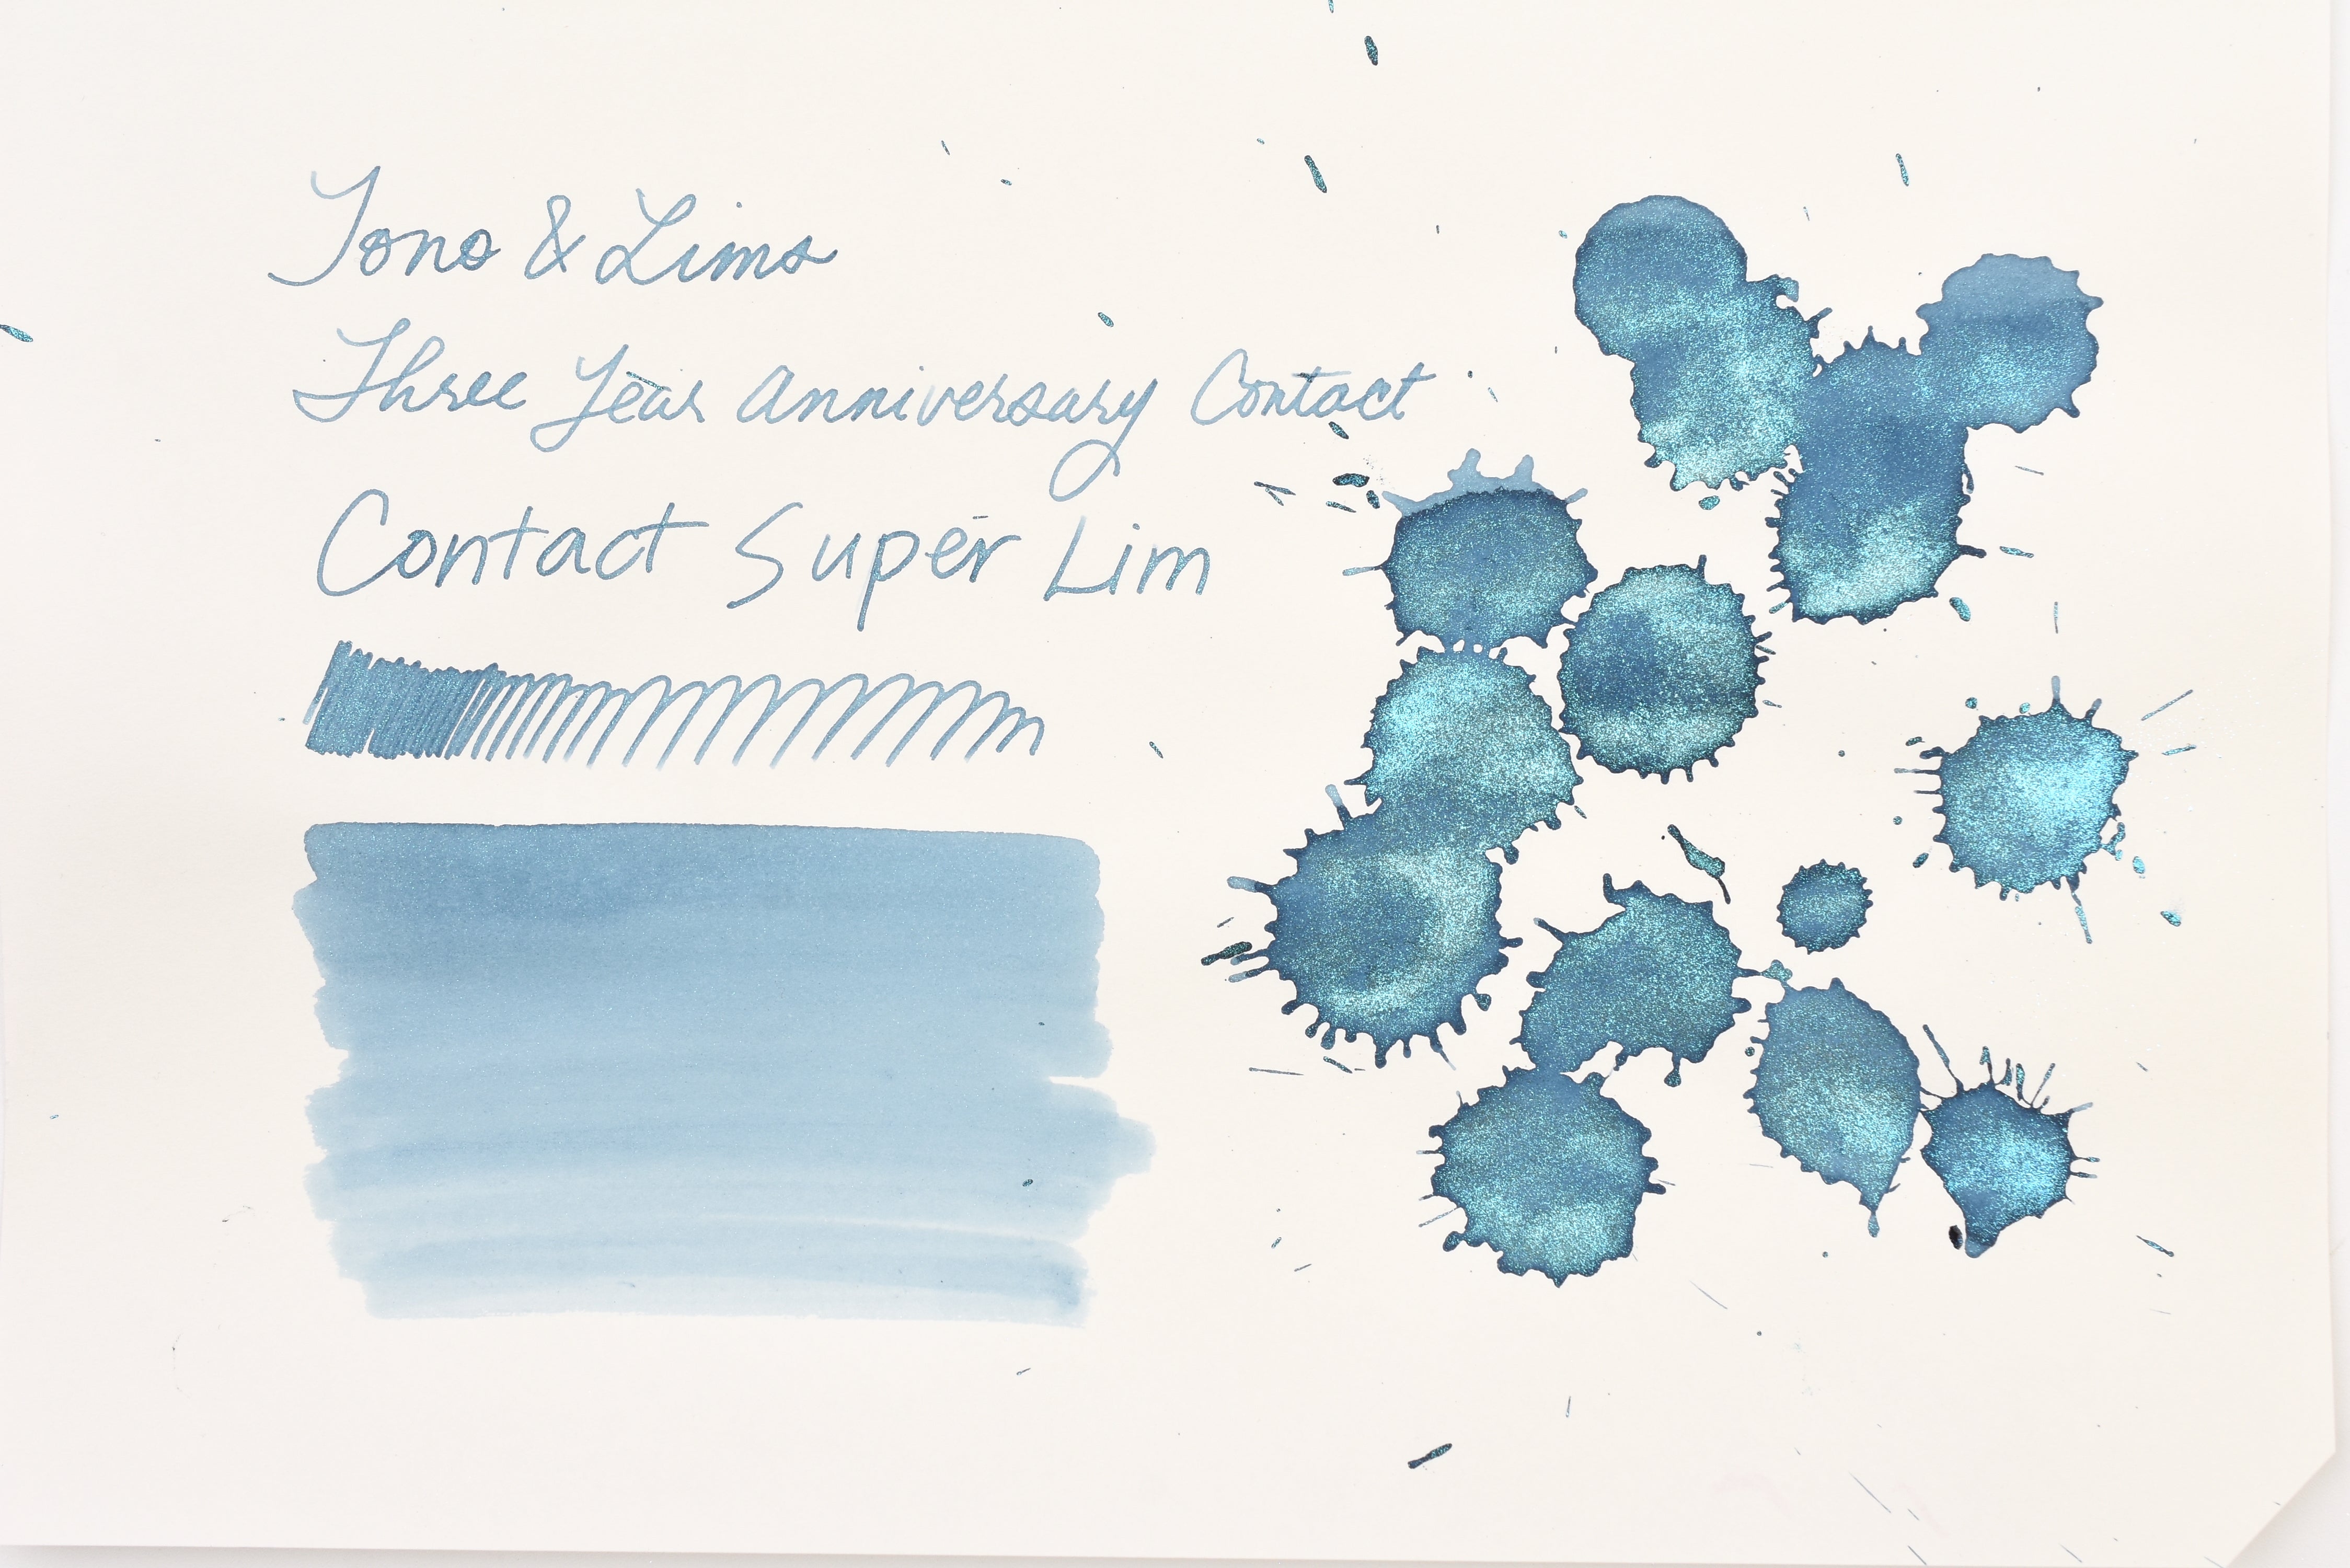 Tono & Lims
Three Year Anniversary Contact
Contact Super Lim